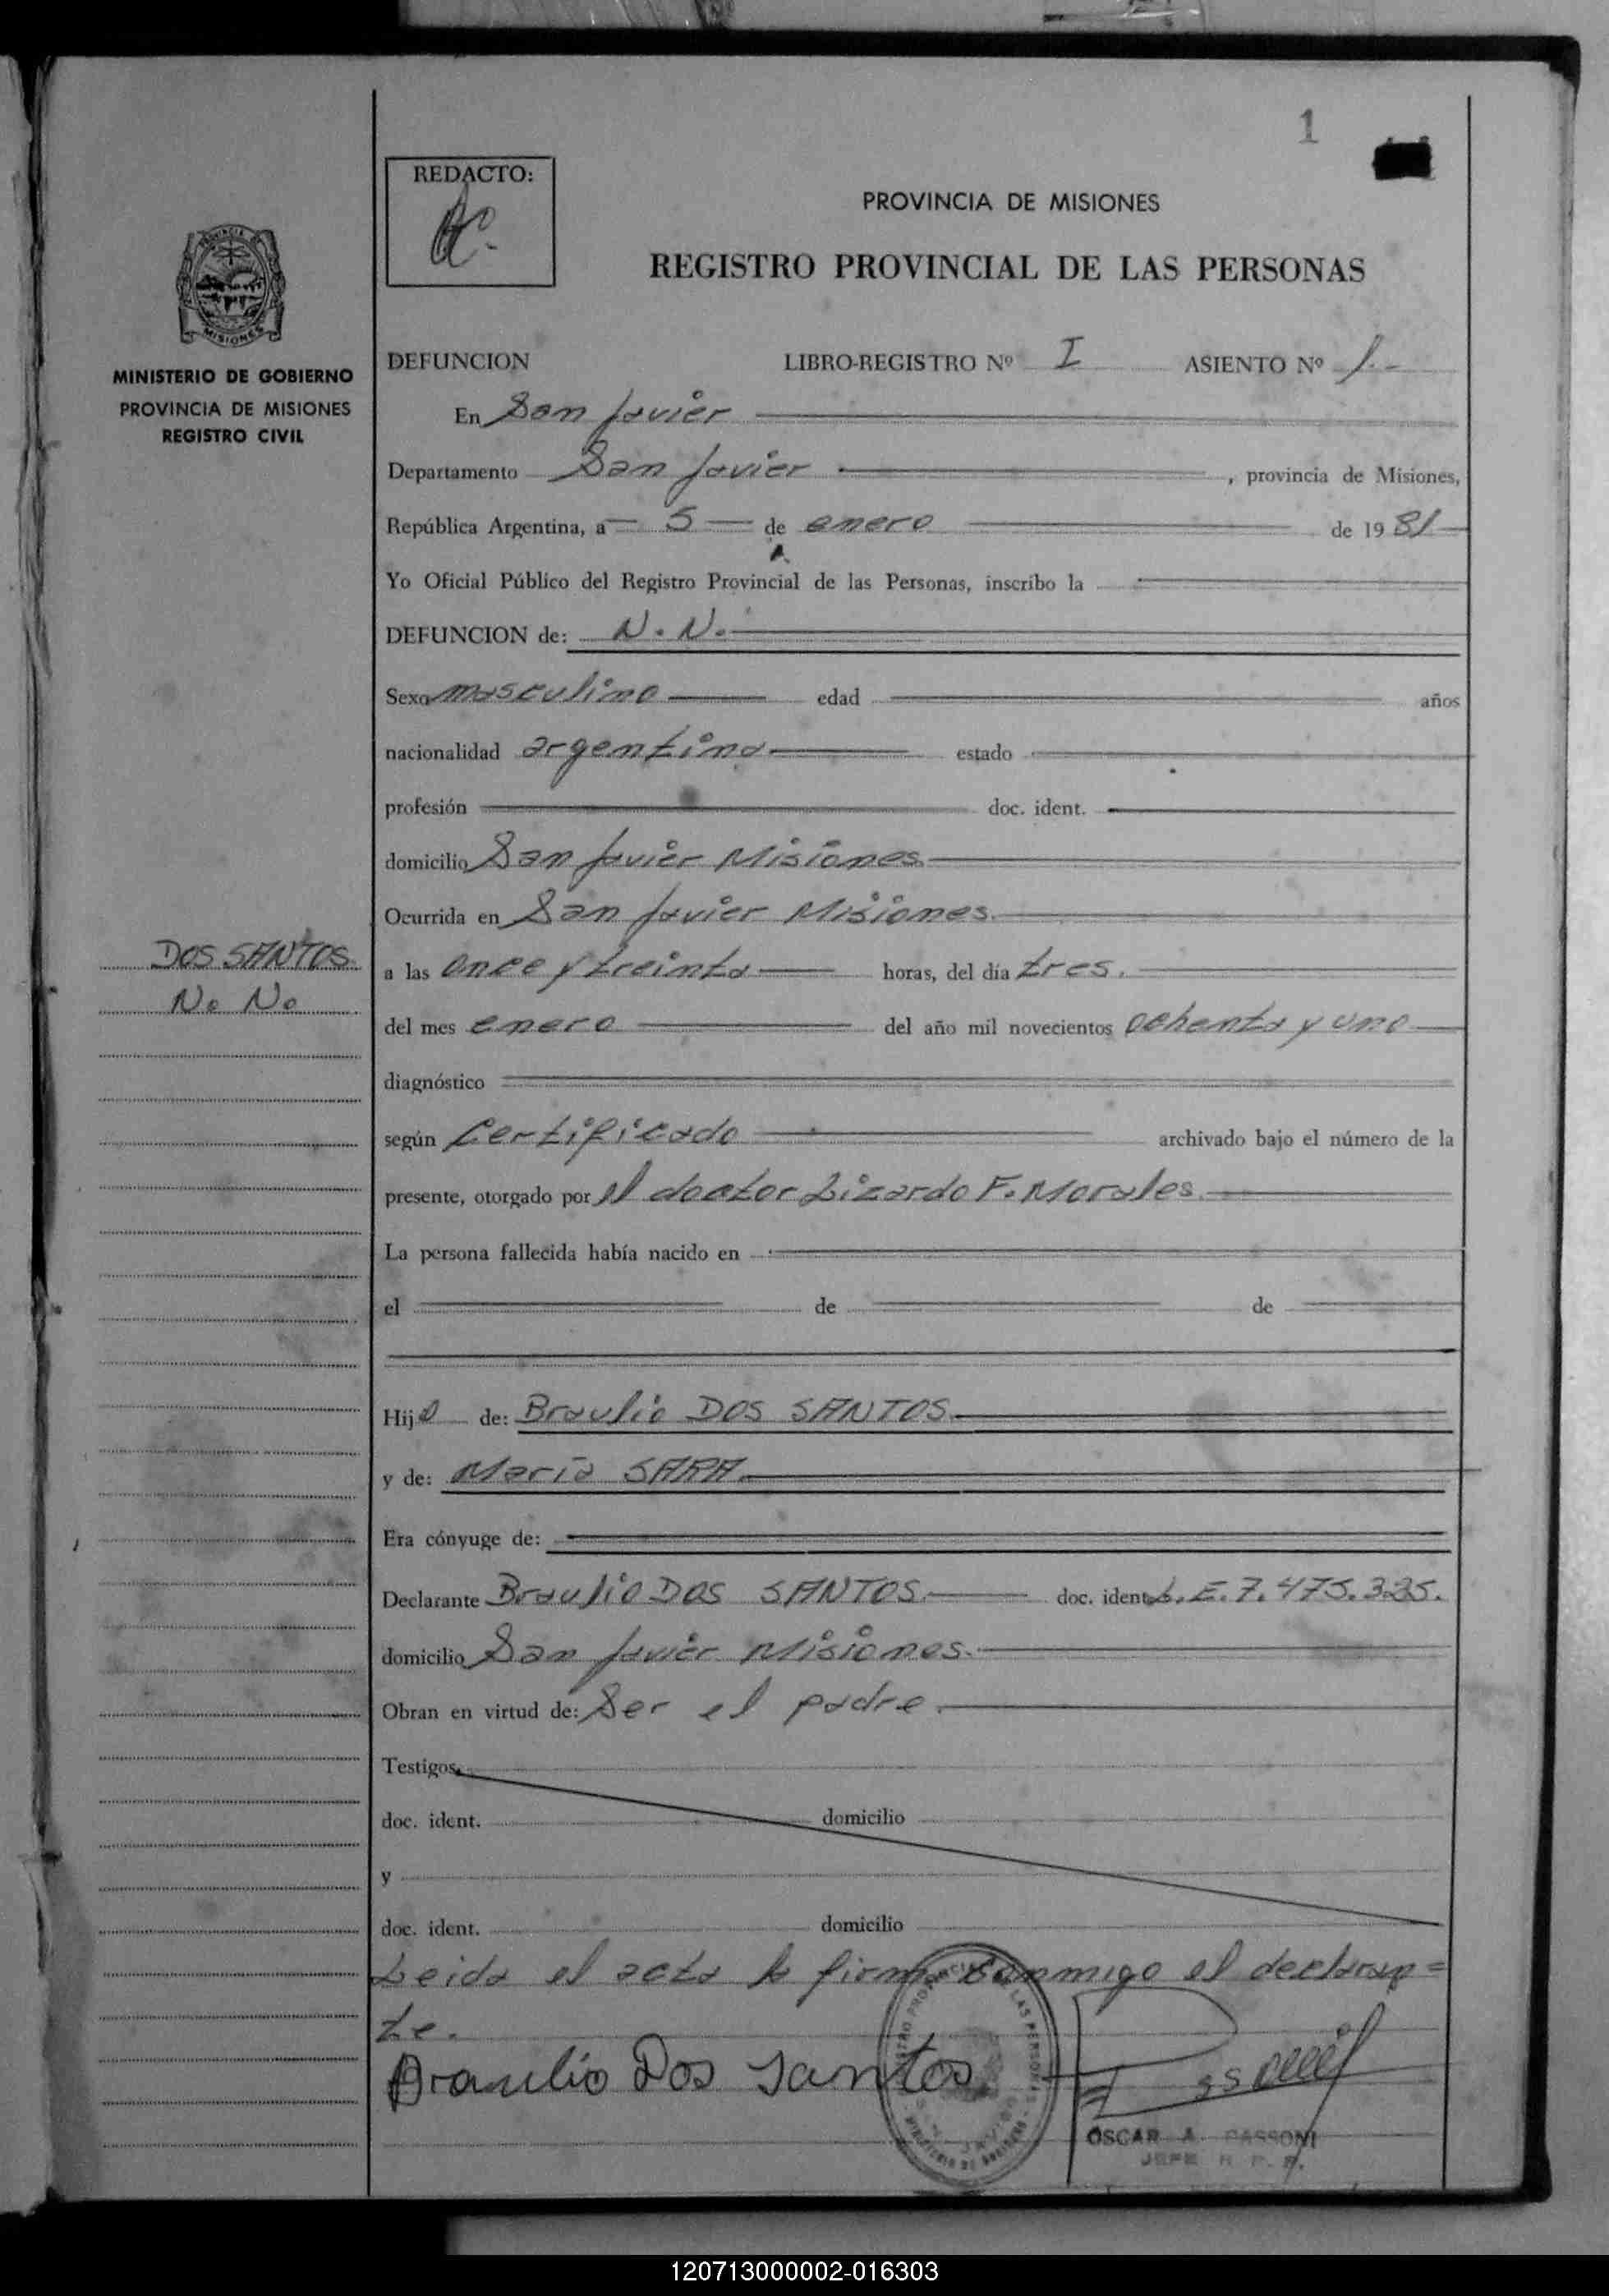 1
REDACTO:
PROVINCIA DE MISIONES
REGISTRO PROVINCIAL DE LAS PERSONAS
MINISTERIO DE GOBIERNO
PROVINCIA DE MISIONES
REGISTRO CIVIL
DEFUNCION LIBRO-REGISTRO Nº I ASIENTO Nº 1.-
En San Javier
Departamento San Javier , provincia de Misiones,
República Argentina, a 5 de enero de 19 81
Yo Oficial Público del Registro Provincial de las Personas, inscribo la
DEFUNCION de: N. N.
Sexo masculino edad años
nacionalidad argentina estado
profesión doc. ident.
domicilio San Javier Misiones
Ocurrida en San Javier Misiones.
DOS SANTOS
N. N.
a las once y treinta horas, del día tres.
del mes enero del año mil novecientos ochenta y uno
diagnóstico
según Certificado archivado bajo el número de la
presente, otorgado por el doctor Lizardo F. Morales
La persona fallecida había nacido en
el de de
Hijo de: Braulio DOS SANTOS
y de: María SARA
Era cónyuge de:
Declarante Braulio DOS SANTOS doc. ident. L.E. 7.475.325.
domicilio San Javier Misiones.
Obran en virtud de: Ser el padre.
Testigos
doc. ident. domicilio
y
doc. ident. domicilio
Leida el acta la firma conmigo el declaran=
te.
Braulio Dos Santos
OSCAR A. PASSONI
JEFE R. P. P.
120713000002-016303